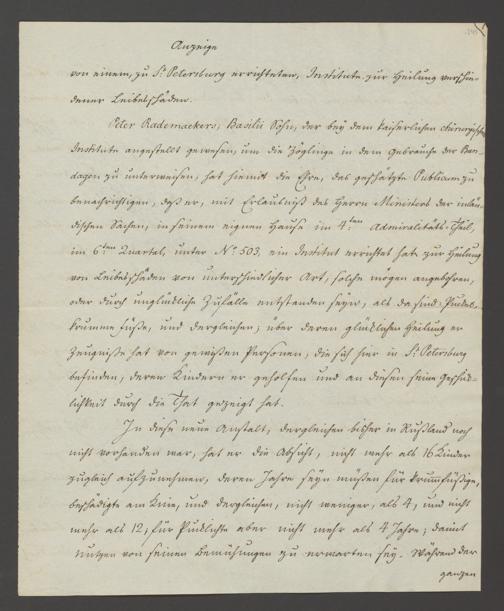 Anzeige
von einem, zu St. Petersburg errichteten, Institute zur Heilung verschie-
dener Leibesschäden.
Peter Rademackers, Basilii Sohn, der bey dem Kaiserlichen chirurgischen
Institute angestellt gewesen, um die Zöglinge in dem Gebrauche der Ban-
dagen zu unterweisen, hat hiemit die Ehre, das geschätzte Publicum zu
benachrichtigen, daß er, mit Erlaubniß des Herrn Ministers der inlän-
dischen Sachen, in seinem eignen Hause im 4.ten Admiralitäts-Theil,
im 6.ten Quartal, unter No. 503, ein Institut errichtet hat zur Heilung
von Leibesschäden von unterschiedlicher Art, solche mögen angebohren,
oder durch unglückliche Zufälle entstanden seyn, als da sind:
krumme Füße, und dergleichen; über deren glücklichen Heilung er
Zeugnisse hat von gewissen Personen, die sich hier in St. Petersburg
befinden, deren Kindern er geholfen und an diesen seine Geschick-
lichkeit durch die That gezeigt hat.
In diese neue Anstalt, dergleichen bisher in Rußland noch
nicht vorhanden war, hat er die Absicht, nicht mehr als 16 Kinder
zugleich aufzunehmen, deren Jahre seyn müssen für krummfüßige,
beschädigte am Knie, und dergleichen, nicht weniger, als 4, und nicht
mehr als 12; für Pucklichte aber nicht mehr als 4 Jahre; damit
Nutzen von seinen Bemühungen zu erwarten sey. Während der
ganzen